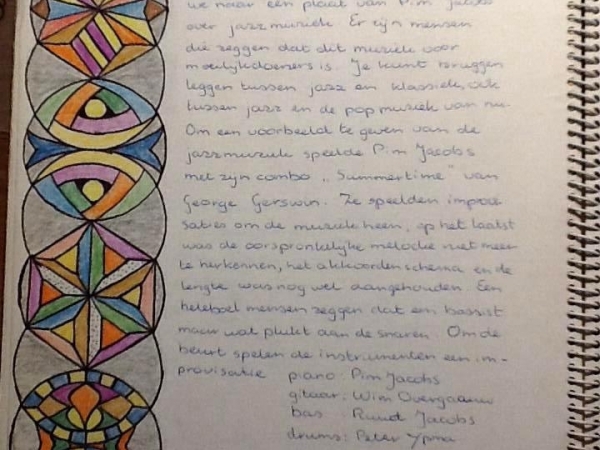 we naar een plaat van Pim Jacobs
over jazzmuziek. Er zijn mensen
die zeggen dat dit muziek voor
moeilijkdoeners is. Je kunt bruggen
leggen tussen jazz en klassiek, ook
tussen jazz en de popmuziek van nu.
Om een voorbeeld te geven van de
jazzmuziek speelde Pim Jacobs
met zijn combo „Summertime" van
George Gerswin. Ze speelden improvi-
saties om de muziek heen, op het laatst
was de oorspronkelijke melodie niet meer
te herkennen, het akkoordenschema en de
lengte was nog wel aangehouden. Een
heleboel mensen zeggen dat een bassist
maar wat plukt aan de snaren. Om de
beurt spelen de instrumenten een im-
provisatie piano: Pim Jacobs
gitaar: Wim Overgaauw
bas: Ruud Jacobs
drums: Peter Ypma